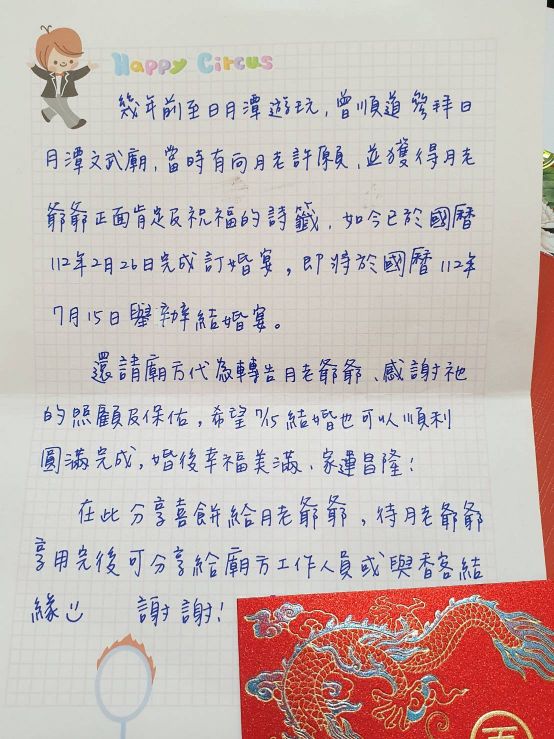 Happy Circus
幾年前至日月潭遊玩,曾順道參拜日
月潭文武廟,當時有向月老許願,並獲得月老
爺爺正面肯定及祝福的詩籤,如今已於國曆
112年2月26日完成訂婚宴,即將於國曆112年
7月15日舉辦結婚宴。
還請廟方代為轉告月老爺爺、感謝祂
的照顧及保佑,希望7/15結婚也可以順利
圓滿完成,婚後幸福美滿、家運昌隆!
在此分享喜餅給月老爺爺,待月老爺爺
享用完後可分享給廟方工作人員或與香客結
緣 謝謝!